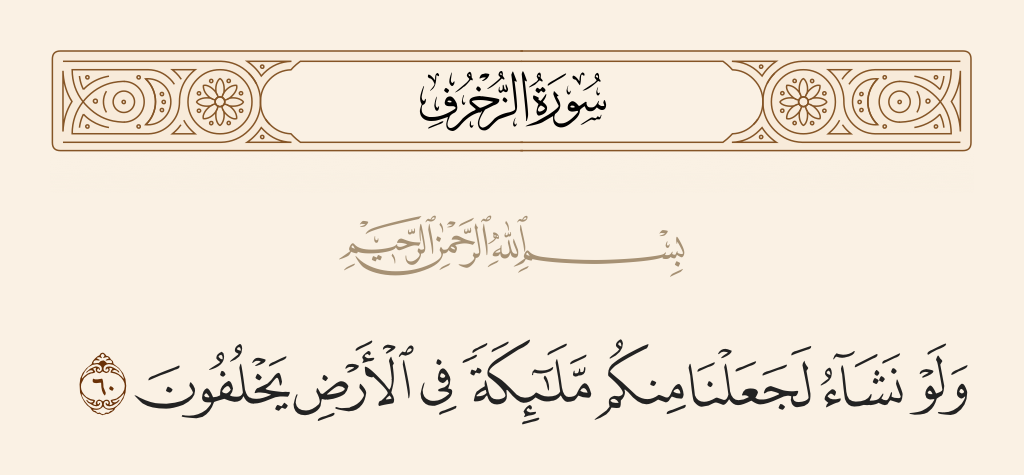 سُورَةُ الزُّخْرُفِ
بِسْمِ ٱللَّهِ ٱلرَّحْمَٰنِ ٱلرَّحِيمِ
وَلَوْ نَشَآءُ لَجَعَلْنَا مِنكُم مَّلَـٰٓئِكَةً فِى ٱلْأَرْضِ يَخْلُفُونَ ٦٠